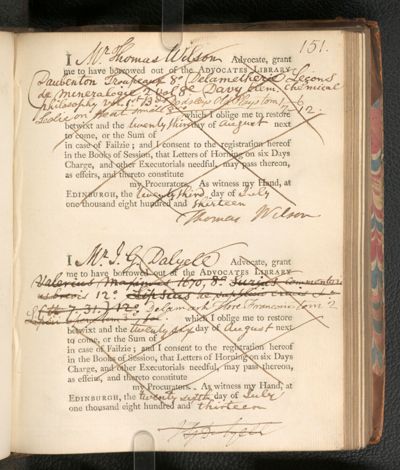 151.
I Mr. Thomas Wilson Advocate, grant
me to have borrowed out of the ADVOCATES LIBRARY
Daubenton Troupeaux 8° Delametherie Leçons
de Mineralogie 2 vol 8° Davy Elem. Chemical
Philosophy vol. 1st
Leslie on Heat which I oblige me to restore
betwixt and the twenty third day of August next
to come, or the Sum of
in case of Failzie; and I consent to the registration hereof
in the Books of Session, that Letters of Horning on six Days
Charge, and other Executorials needful, may pass thereon,
as effeirs, and thereto constitute
my Procurators. As witness my Hand, at
EDINBURGH, the twenty third day of July
one thousand eight hundred and thirteen
Thomas Wilson
I Mr. J. G. Dalyell Advocate, grant
me to have borrowed out of the ADVOCATES LIBRARY
Valerius Maximus 1670, 8°
12° Lipsius de
12°
which I oblige me to restore
betwixt and the twenty six day of August next
to come, or the Sum of
in case of Failzie; and I consent to the registration hereof
in the Books of Session, that Letters of Horning on six Days
Charge, and other Executorials needful, may pass thereon,
as effeirs, and thereto constitute
my Procurators. As witness my Hand, at
EDINBURGH, the twenty sixth day of July
one thousand eight hundred and thirteen